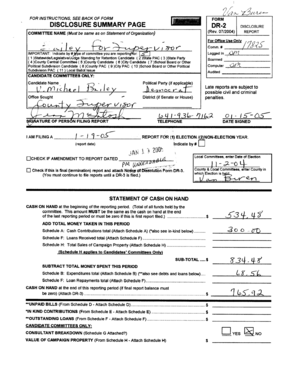 Van Buren
FOR INSTRUCTIONS, SEE BACK OF FORM
DISCLOSURE SUMMARY PAGE
FORM
DR-2
(Rev. 07/2004)
DISCLOSURE
REPORT
COMMITTEE NAME (Must be same as on Statement of Organization)
Bailey for Supervisor
For Office Use Only
Comm. #
Logged In
Scanned
Computer
Audited
CANDIDATE COMMITTEES ONLY:
Candidate Name
Political Party (if applicable)
V. Michael Bailey
Democrat
Office Sought
District (if Senate or House)
County Supervisor
Late reports are subject to
possible civil and criminal
penalties.
641-936-7162
01-15-05
SIGNATURE OF PERSON FILING REPORT
TELEPHONE
DATE SIGNED
I AM FILING A
1-19-05
(report date)
REPORT FOR (1) ELECTION /(2)NON-ELECTION YEAR.
Indicate by #
CHECK IF AMENDMENT TO REPORT DATED
Check if this is final (termination) report and attach Notice of Dissolution Form DR-3.
(You must continue to file reports until a DR-3 is filed.)
Local Committees, enter Date of Election
11-2-04
County & Local Committees, enter County in
which Election is held
Van Buren
STATEMENT OF CASH ON HAND
CASH ON HAND at the beginning of the reporting period. (Total of all funds held by the
committee. This amount MUST be the same as the cash on hand at the end
of the last reporting period or must be zero if this is first report filed.) $ 534.48
ADD TOTAL MONEY TAKEN IN THIS PERIOD
Schedule A: Cash Contributions total (Attach Schedule A) (*also see in-kind below) 300.00
Schedule F: Loans Received total (Attach Schedule F)
Schedule H: Total Sales of Campaign Property (Attach Schedule H)
(Schedule H applies to Candidates' Committees Only)
SUB-TOTAL $ 834.48
SUBTRACT TOTAL MONEY SPENT THIS PERIOD
Schedule B: Expenditures total (Attach Schedule B) (**also see debts and loans below) 68.56
Schedule F: Loan Repayments total (Attach Schedule F)
CASH ON HAND at the end of this reporting period (if final report balance must
be zero) (Attach DR-3) $ 765.92
**UNPAID BILLS (From Schedule D - Attach Schedule D) $
*IN KIND CONTRIBUTIONS (From Schedule E - Attach Schedule E) $
**OUTSTANDING LOANS (From Schedule F - Attach Schedule F) $
CANDIDATE COMMITTEES ONLY:
CONSULTANT BREAKDOWN (Schedule G Attached?) YES NO
VALUE OF CAMPAIGN PROPERTY (From Schedule H - Attach Schedule H) $